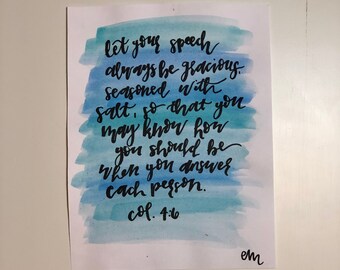 let your speech
always be gracious,
seasoned with
salt, so that you
may know how
you should be
when you answer
each person.
col. 4:6
em